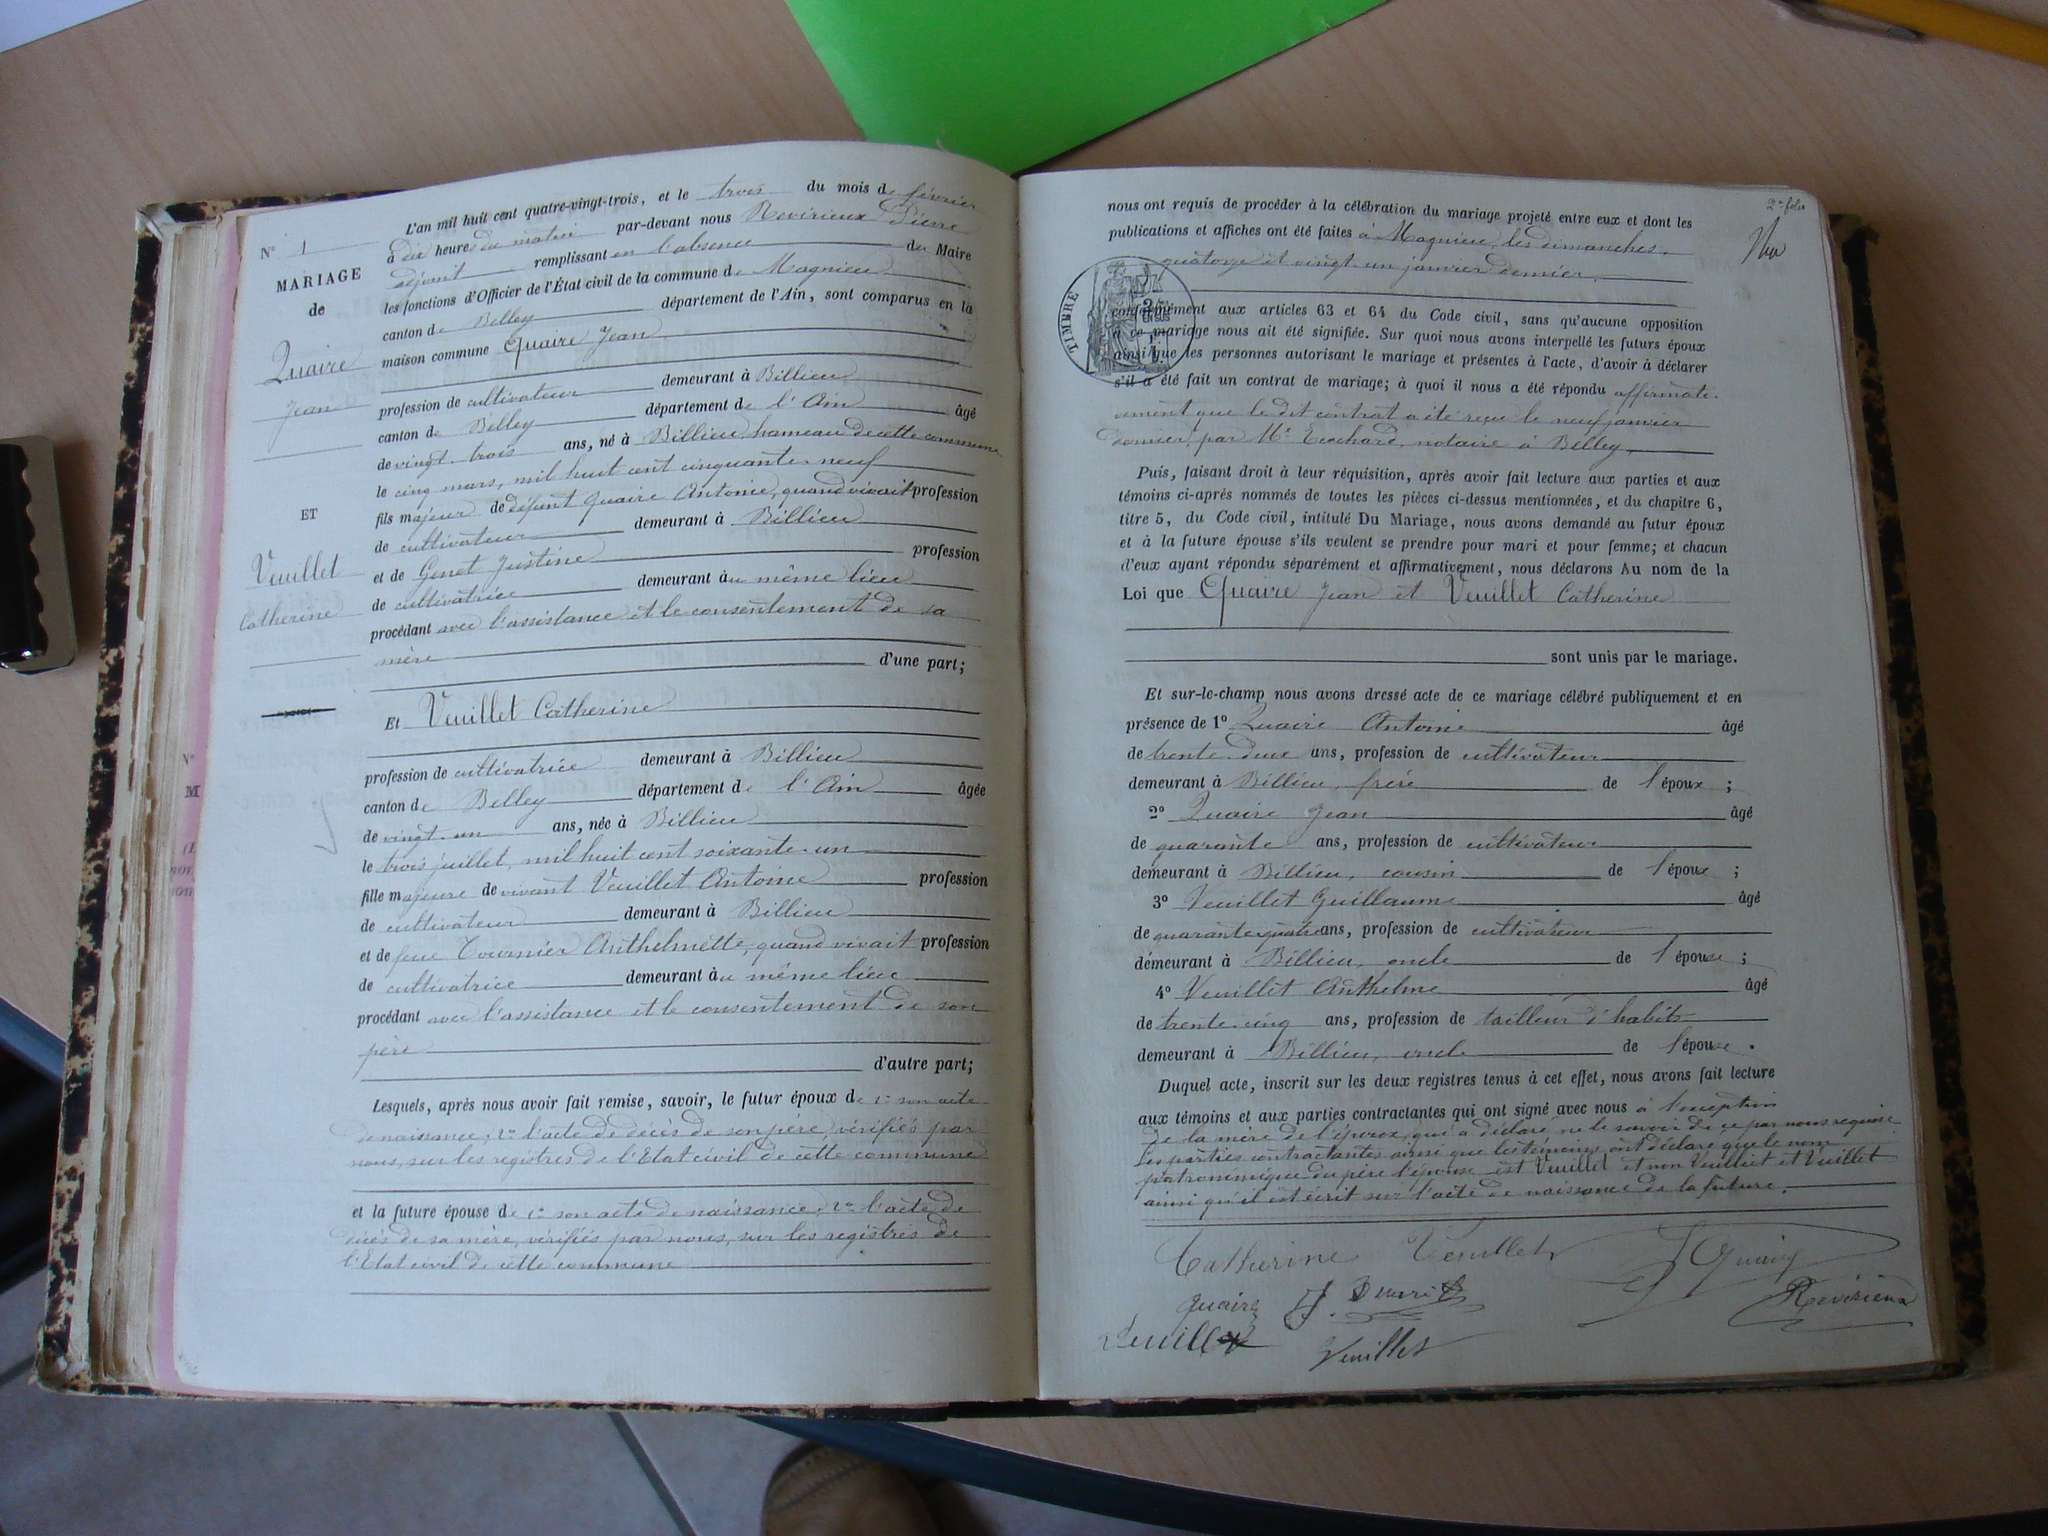 N° 1
MARIAGE
de
Quaire
Jean
ET
Veuillet
Catherine
L'an mil huit cent quatre-vingt-trois, et le trois du mois de février
à dix heures du matin par-devant nous Revirieux Pierre
adjoint remplissant en l'absence du Maire
les fonctions d'Officier de l'État civil de la commune de Magnieu
canton de Belley département de l'Ain, sont comparus en la
maison commune Quaire Jean
profession de cultivateur demeurant à Billieu
canton de Belley département de l'Ain âgé
de vingt-trois ans, né à Billieu, hameau de cette commune
le cinq mars, mil huit cent cinquante-neuf
fils majeur de défunt Quaire Antoine, quand vivait profession
de cultivateur demeurant à Billieu
et de Genet Justine profession
de cultivatrice demeurant au même lieu
procédant avec l'assistance et le consentement de sa
mère
d'une part;
Et Veuillet Catherine
profession de cultivatrice demeurant à Billieu
canton de Belley département de l'Ain âgée
de vingt-un ans, née à Billieu
le trois juillet, mil huit cent soixante-un
fille majeure de vivant Veuillet Antoine profession
de cultivateur demeurant à Billieu
et de feue Tournier Anthelmette, quand vivait profession
de cultivatrice demeurant au même lieu
procédant avec l'assistance et le consentement de son
père
d'autre part;
Lesquels, après nous avoir fait remise, savoir, le futur époux de 1° son acte
de naissance; 2° l'acte de décès de son père, vérifiés par
nous, sur les registres de l'Etat civil de cette commune
et la future épouse de 1° son acte de naissance; 2° l'acte de
décès de sa mère, vérifiés par nous, sur les registres de
l'Etat civil de cette commune
N°
M
2e folio
nous ont requis de procéder à la célébration du mariage projeté entre eux et dont les
publications et affiches ont été faites à Magnieu, les dimanches,
quatorze et vingt-un janvier dernier,
TIMBRE
conformément aux articles 63 et 64 du Code civil, sans qu'aucune opposition
à ce mariage nous ait été signifiée. Sur quoi nous avons interpellé les futurs époux
ainsi que les personnes autorisant le mariage et présentes à l'acte, d'avoir à déclarer
s'il a été fait un contrat de mariage; à quoi il nous a été répondu affirmati-
vement que le dit contrat a été reçu le neuf janvier
dernier, par Me notaire à Belley,
Puis, faisant droit à leur réquisition, après avoir fait lecture aux parties et aux
témoins ci-après nommés de toutes les pièces ci-dessus mentionnées, et du chapitre 6,
titre 5, du Code civil, intitulé Du Mariage, nous avons demandé au futur époux
et à la future épouse s'ils veulent se prendre pour mari et pour femme; et chacun
d'eux ayant répondu séparément et affirmativement, nous déclarons Au nom de la
Loi que Quaire Jean et Veuillet Catherine
sont unis par le mariage.
Et sur-le-champ nous avons dressé acte de ce mariage célébré publiquement et en
présence de 1° Quaire Antoine âgé
de trente-deux ans, profession de cultivateur
demeurant à Billieu, frère de l'époux;
2° Quaire Jean âgé
de quarante ans, profession de cultivateur
demeurant à Billieu, cousin de l'époux;
3° Veuillet Guillaume âgé
de quarante-quatre ans, profession de cultivateur
demeurant à Billieu, oncle de l'épouse;
4° Veuillet Anthelme âgé
de trente-cinq ans, profession de tailleur d'habits
demeurant à Billieu, oncle de l'épouse.
Duquel acte, inscrit sur les deux registres tenus à cet effet, nous avons fait lecture
aux témoins et aux parties contractantes qui ont signé avec nous à l'exception
de la mère de l'époux, qui a déclaré ne le savoir de ce par nous requise.
Les parties contractantes ainsi que les témoins ont déclaré que le nom
patronimique du père l'épouse est Veuillet et non Veulliet et Vuillet
ainsi qu'il est écrit sur l'acte de naissance de la future.
Catherine Veuillet Quaire
Quaire Revirieux
Veuillet Veuillet